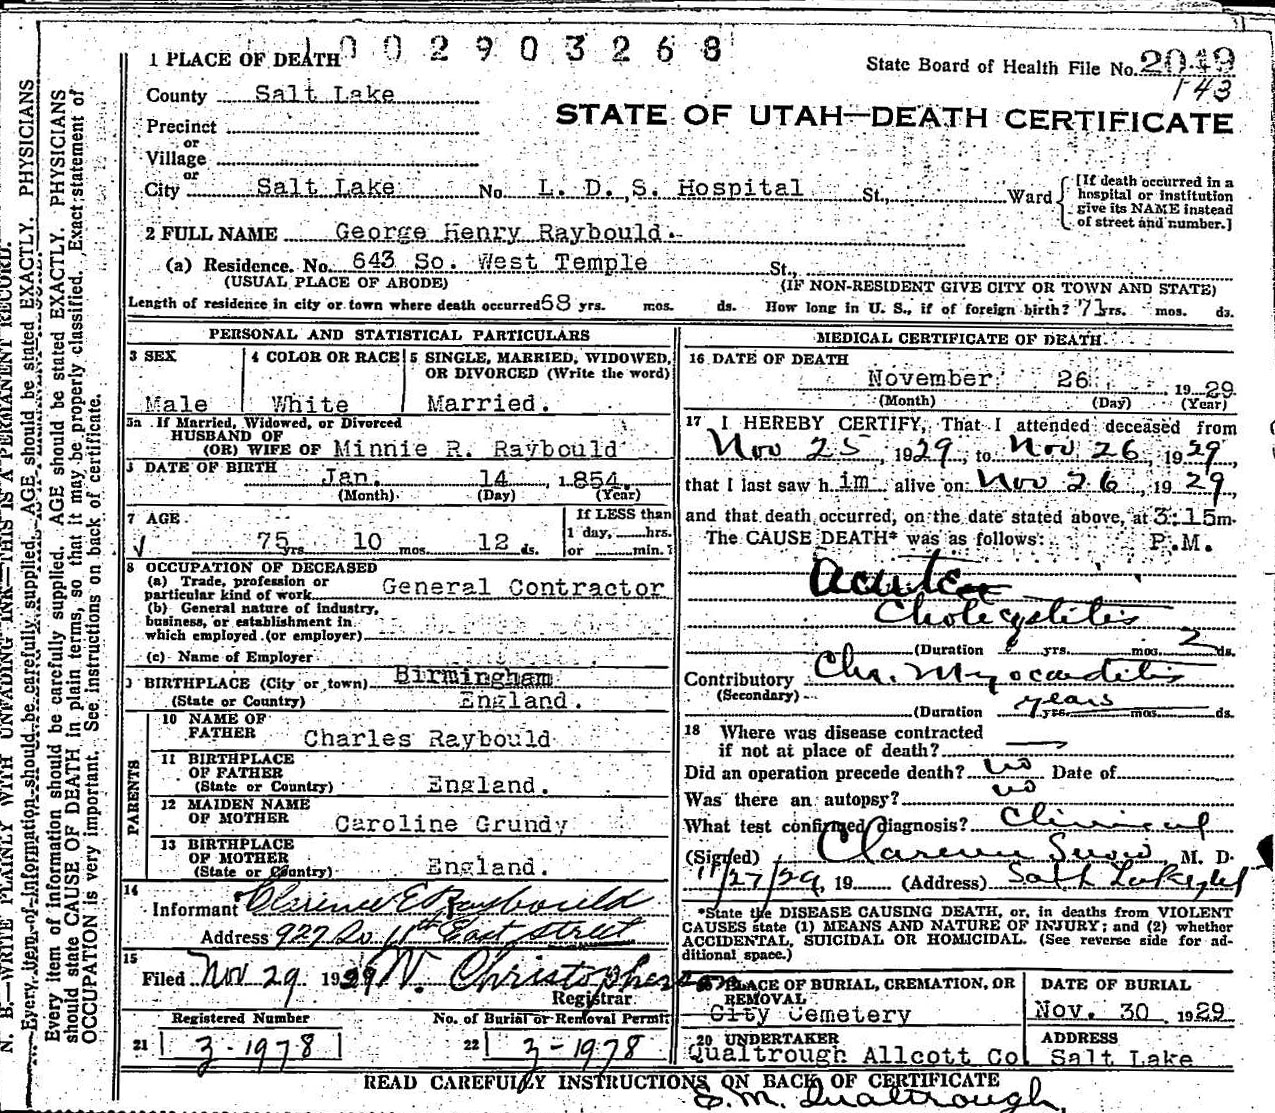 1002903268
1 PLACE OF DEATH
State Board of Health File No. 2049
143
County Salt Lake
STATE OF UTAH—DEATH CERTIFICATE
Precinct
or
Village
or
City Salt Lake No. L. D. S. Hospital St., Ward
[If death occurred in a
hospital or institution
give its NAME instead
of street and number.]
2 FULL NAME George Henry Raybould.
(a) Residence. No. 643 So. West Temple St.,
(USUAL PLACE OF ABODE) (IF NON-RESIDENT GIVE CITY OR TOWN AND STATE)
Length of residence in city or town where death occurred 68 yrs. mos. ds. How long in U. S., if of foreign birth? 71 yrs. mos. ds.
PERSONAL AND STATISTICAL PARTICULARS
3 SEX 4 COLOR OR RACE 5 SINGLE, MARRIED, WIDOWED,
OR DIVORCED (Write the word)
Male White Married.
5a If Married, Widowed, or Divorced
HUSBAND OF
(OR) WIFE OF Minnie R. Raybould
DATE OF BIRTH
Jan. 14, 1854.
(Month) (Day) (Year)
7 AGE If LESS than
1 day, hrs.
75 yrs. 10 mos. 12 ds. or min.?
8 OCCUPATION OF DECEASED
(a) Trade, profession or
particular kind of work General Contractor
(b) General nature of industry,
business, or establishment in
which employed (or employer)
(c) Name of Employer
BIRTHPLACE (City or town) Birmingham
(State or Country) England.
PARENTS
10 NAME OF
FATHER Charles Raybould
11 BIRTHPLACE
OF FATHER
(State or Country) England.
12 MAIDEN NAME
OF MOTHER Caroline Grundy
13 BIRTHPLACE
OF MOTHER
(State or Country) England.
14
Informant Clarence E Raybould
Address 927 So 11th East street
15
Filed Nov 29 1929 N. Christopherson
Registrar
Registered Number No. of Burial or Removal Permit
21 3-1978 22 3-1978
MEDICAL CERTIFICATE OF DEATH
16 DATE OF DEATH
November 26 1929
(Month) (Day) (Year)
17 I HEREBY CERTIFY, That I attended deceased from
Nov 25, 1929, to Nov 26, 1929,
that I last saw him alive on Nov 26, 1929,
and that death occurred, on the date stated above, at 3:15 m.
The CAUSE DEATH* was as follows: P.M.
Acute
Cholecystitis
(Duration yrs. mos. 2 ds.
Contributory Chr. Myocarditis
(Secondary)
years
(Duration yrs. mos. ds.
18 Where was disease contracted
if not at place of death?
Did an operation precede death? no Date of
Was there an autopsy? no
What test confirmed diagnosis? Clinical
(Signed) Clarence Snow M. D.
11/27/29, 19 (Address) Salt Lake
*State the DISEASE CAUSING DEATH, or, in deaths from VIOLENT
CAUSES state (1) MEANS AND NATURE OF INJURY; and (2) whether
ACCIDENTAL, SUICIDAL OR HOMICIDAL. (See reverse side for ad-
ditional space.)
PLACE OF BURIAL, CREMATION, OR
REMOVAL
City Cemetery
DATE OF BURIAL
Nov. 30 1929
20 UNDERTAKER
Qualtrough Allcott Co
ADDRESS
Salt Lake
READ CAREFULLY INSTRUCTIONS ON BACK OF CERTIFICATE
S. M. Qualtrough
N. B.—WRITE PLAINLY WITH UNFADING INK—THIS IS A PERMANENT RECORD.
Every item of information should be carefully supplied. AGE should be stated EXACTLY. PHYSICIANS
Every item of information should be carefully supplied. AGE should be stated EXACTLY. PHYSICIANS
should state CAUSE OF DEATH in plain terms, so that it may be properly classified. Exact statement of
OCCUPATION is very important. See instructions on back of certificate.